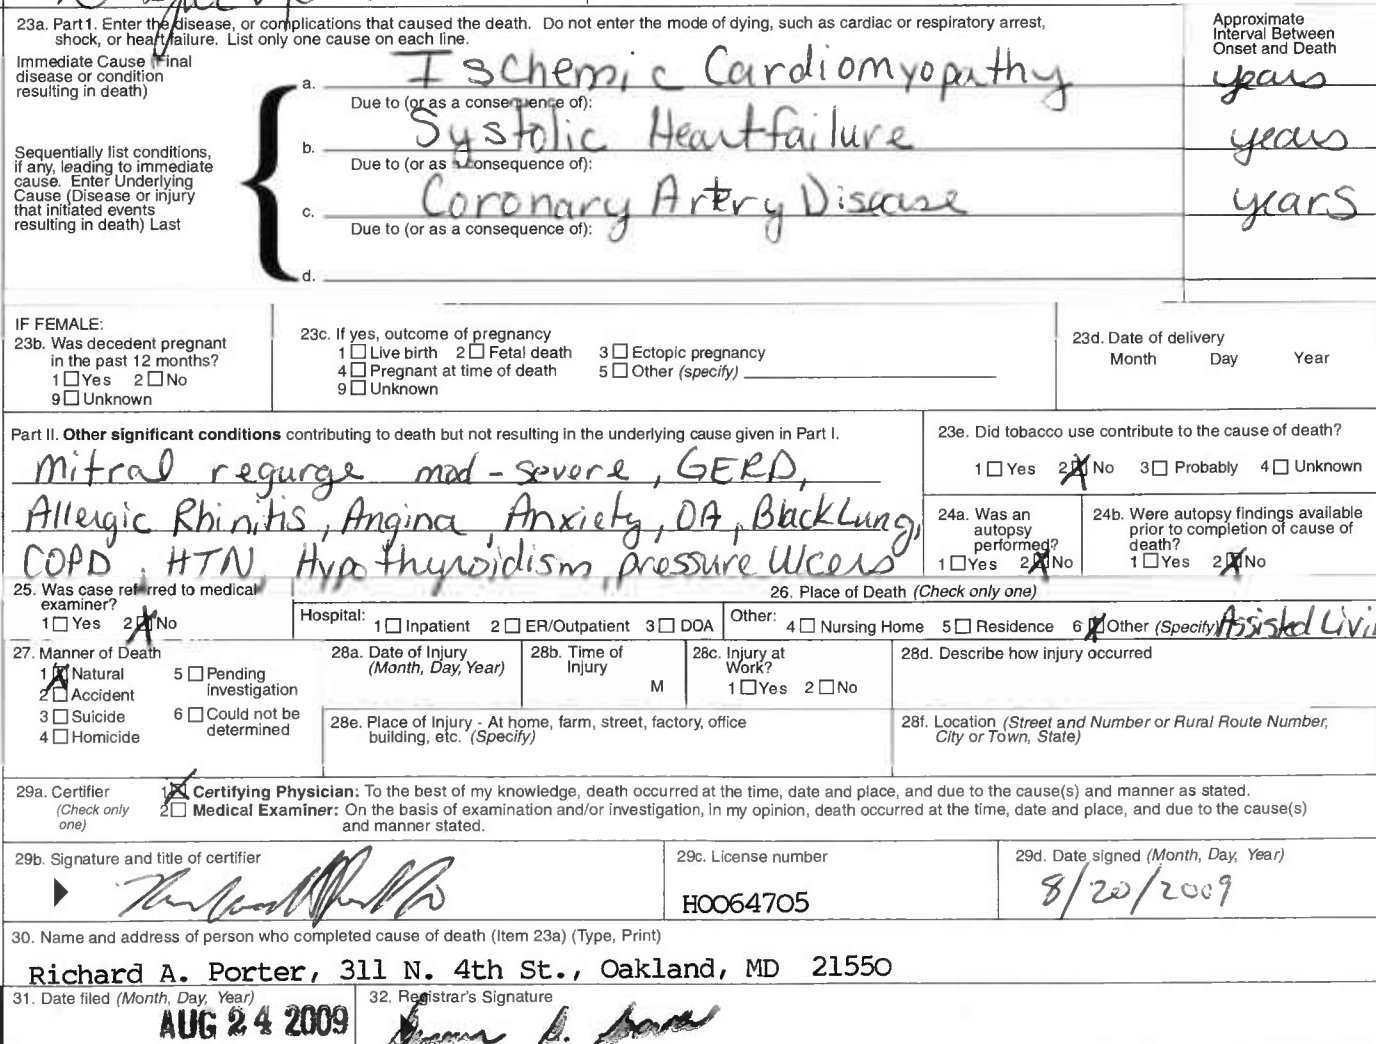 23a. Part 1. Enter the disease, or complications that caused the death. Do not enter the mode of dying, such as cardiac or respiratory arrest,
shock, or heart failure. List only one cause on each line.
Approximate
Interval Between
Onset and Death
Immediate Cause (Final
disease or condition
resulting in death)
a. Ischemic Cardiomyopathy years
Due to (or as a consequence of):
b. Systolic Heartfailure years
Due to (or as a consequence of):
Sequentially list conditions,
if any, leading to immediate
cause. Enter Underlying
Cause (Disease or injury
that initiated events
resulting in death) Last
c. Coronary Artery Disease years
Due to (or as a consequence of):
d.
IF FEMALE:
23b. Was decedent pregnant
in the past 12 months?
1 ☐ Yes 2 ☐ No
9 ☐ Unknown
23c. If yes, outcome of pregnancy
1 ☐ Live birth 2 ☐ Fetal death 3 ☐ Ectopic pregnancy
4 ☐ Pregnant at time of death 5 ☐ Other (specify)
9 ☐ Unknown
23d. Date of delivery
Month Day Year
Part II. Other significant conditions contributing to death but not resulting in the underlying cause given in Part I.
Mitral regurge mod-severe, GERD,
Allergic Rhinitis, Angina, Anxiety, OA, Black Lung,
COPD, HTN, Hypothyroidism, pressure Ulcers
23e. Did tobacco use contribute to the cause of death?
1 ☐ Yes 2 ☒ No 3 ☐ Probably 4 ☐ Unknown
24a. Was an
autopsy
performed?
1 ☐ Yes 2 ☒ No
24b. Were autopsy findings available
prior to completion of cause of
death?
1 ☐ Yes 2 ☒ No
25. Was case referred to medical
examiner?
1 ☐ Yes 2 ☒ No
26. Place of Death (Check only one)
Hospital: 1 ☐ Inpatient 2 ☐ ER/Outpatient 3 ☐ DOA Other: 4 ☐ Nursing Home 5 ☐ Residence 6 ☒ Other (Specify) Assisted Livi
27. Manner of Death
1 ☒ Natural
2 ☐ Accident
3 ☐ Suicide
4 ☐ Homicide
5 ☐ Pending
investigation
6 ☐ Could not be
determined
28a. Date of Injury
(Month, Day, Year)
28b. Time of
Injury
M
28c. Injury at
Work?
1 ☐ Yes 2 ☐ No
28d. Describe how injury occurred
28e. Place of Injury - At home, farm, street, factory, office
building, etc. (Specify)
28f. Location (Street and Number or Rural Route Number,
City or Town, State)
29a. Certifier
(Check only
one)
1 ☒ Certifying Physician: To the best of my knowledge, death occurred at the time, date and place, and due to the cause(s) and manner as stated.
2 ☐ Medical Examiner: On the basis of examination and/or investigation, in my opinion, death occurred at the time, date and place, and due to the cause(s)
and manner stated.
29b. Signature and title of certifier
29c. License number
H0064705
29d. Date signed (Month, Day, Year)
8/20/2009
30. Name and address of person who completed cause of death (Item 23a) (Type, Print)
Richard A. Porter, 311 N. 4th St., Oakland, MD 21550
31. Date filed (Month, Day, Year)
AUG 24 2009
32. Registrar's Signature